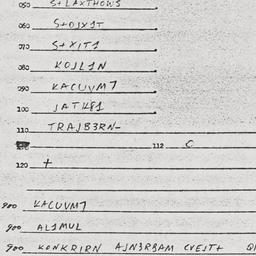 050 S+LAXTHOWS
060 S+OJX1T
070 S+XIT1
080 KOJL1N
090 KACUVM7
100 JATK81
110 TRAJB3RN-
112 C
120 +
900 KACUVM7
900 AL1MUL
900 KONKRIRN AJN3R8AM CVEJT+